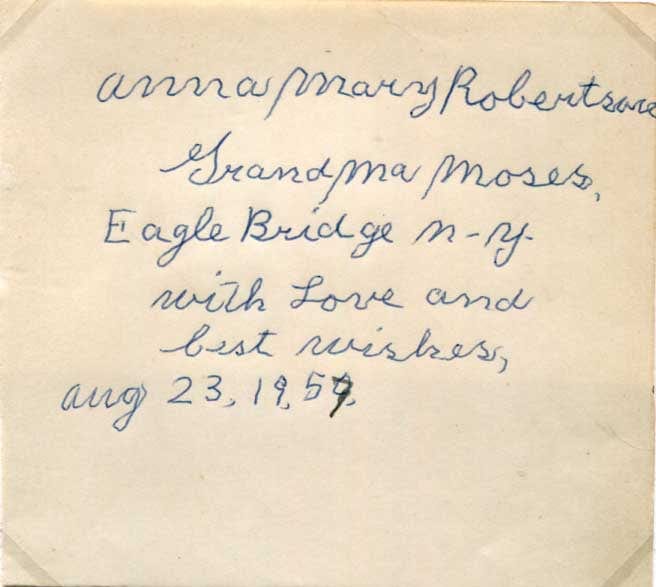 anna Mary Robertson
Grand Ma Moses,
Eagle Bridge n-y.
with Love and
best wishes,
aug 23, 19,59,